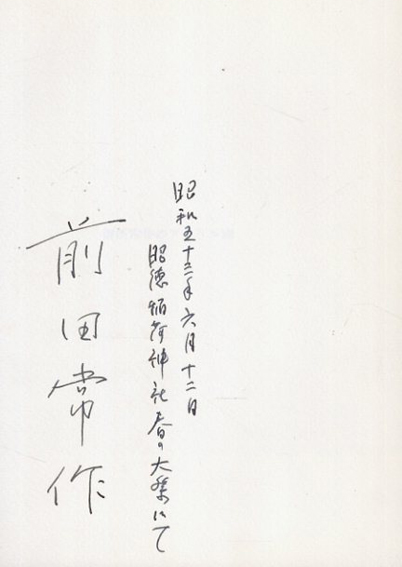 昭和五十三年六月十二日
昭徳稲荷神社春の大祭にて
前田常作